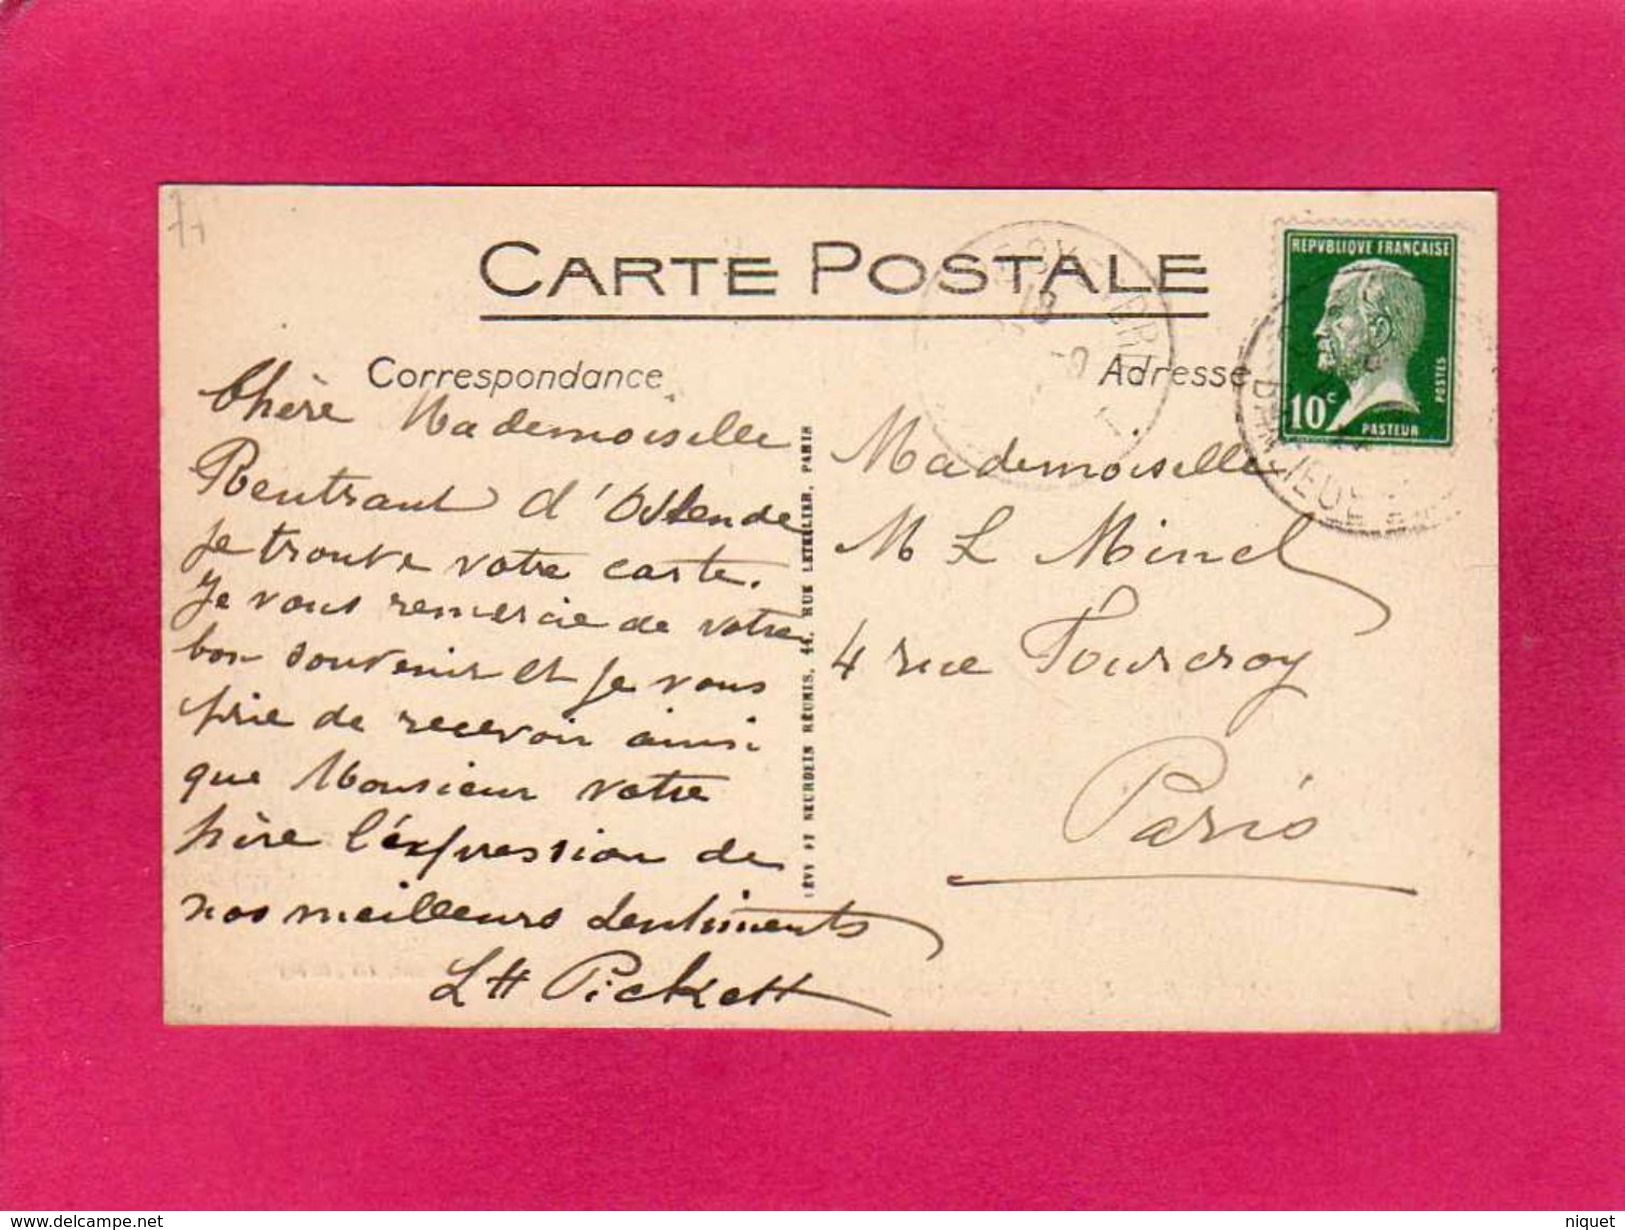 CARTE POSTALE
Correspondance
Adresse
REPVBLIQVE FRANÇAISE
10c
POSTES
PASTEUR
BANLIEUE
Chère Mademoiselle
Rentrant d'Ostende
je trouve votre carte.
Je vous remercie de votre
bon souvenir et je vous
prie de recevoir ainsi
que Monsieur votre
père l'expression de
nos meilleurs sentiments
Pickett
LÉVY ET NEURDEIN RÉUNIS, 44, RUE LETELLIER, PARIS
Mademoiselle
M L Minel
4 rue Fourcroy
Paris
www.delcampe.net
niquet